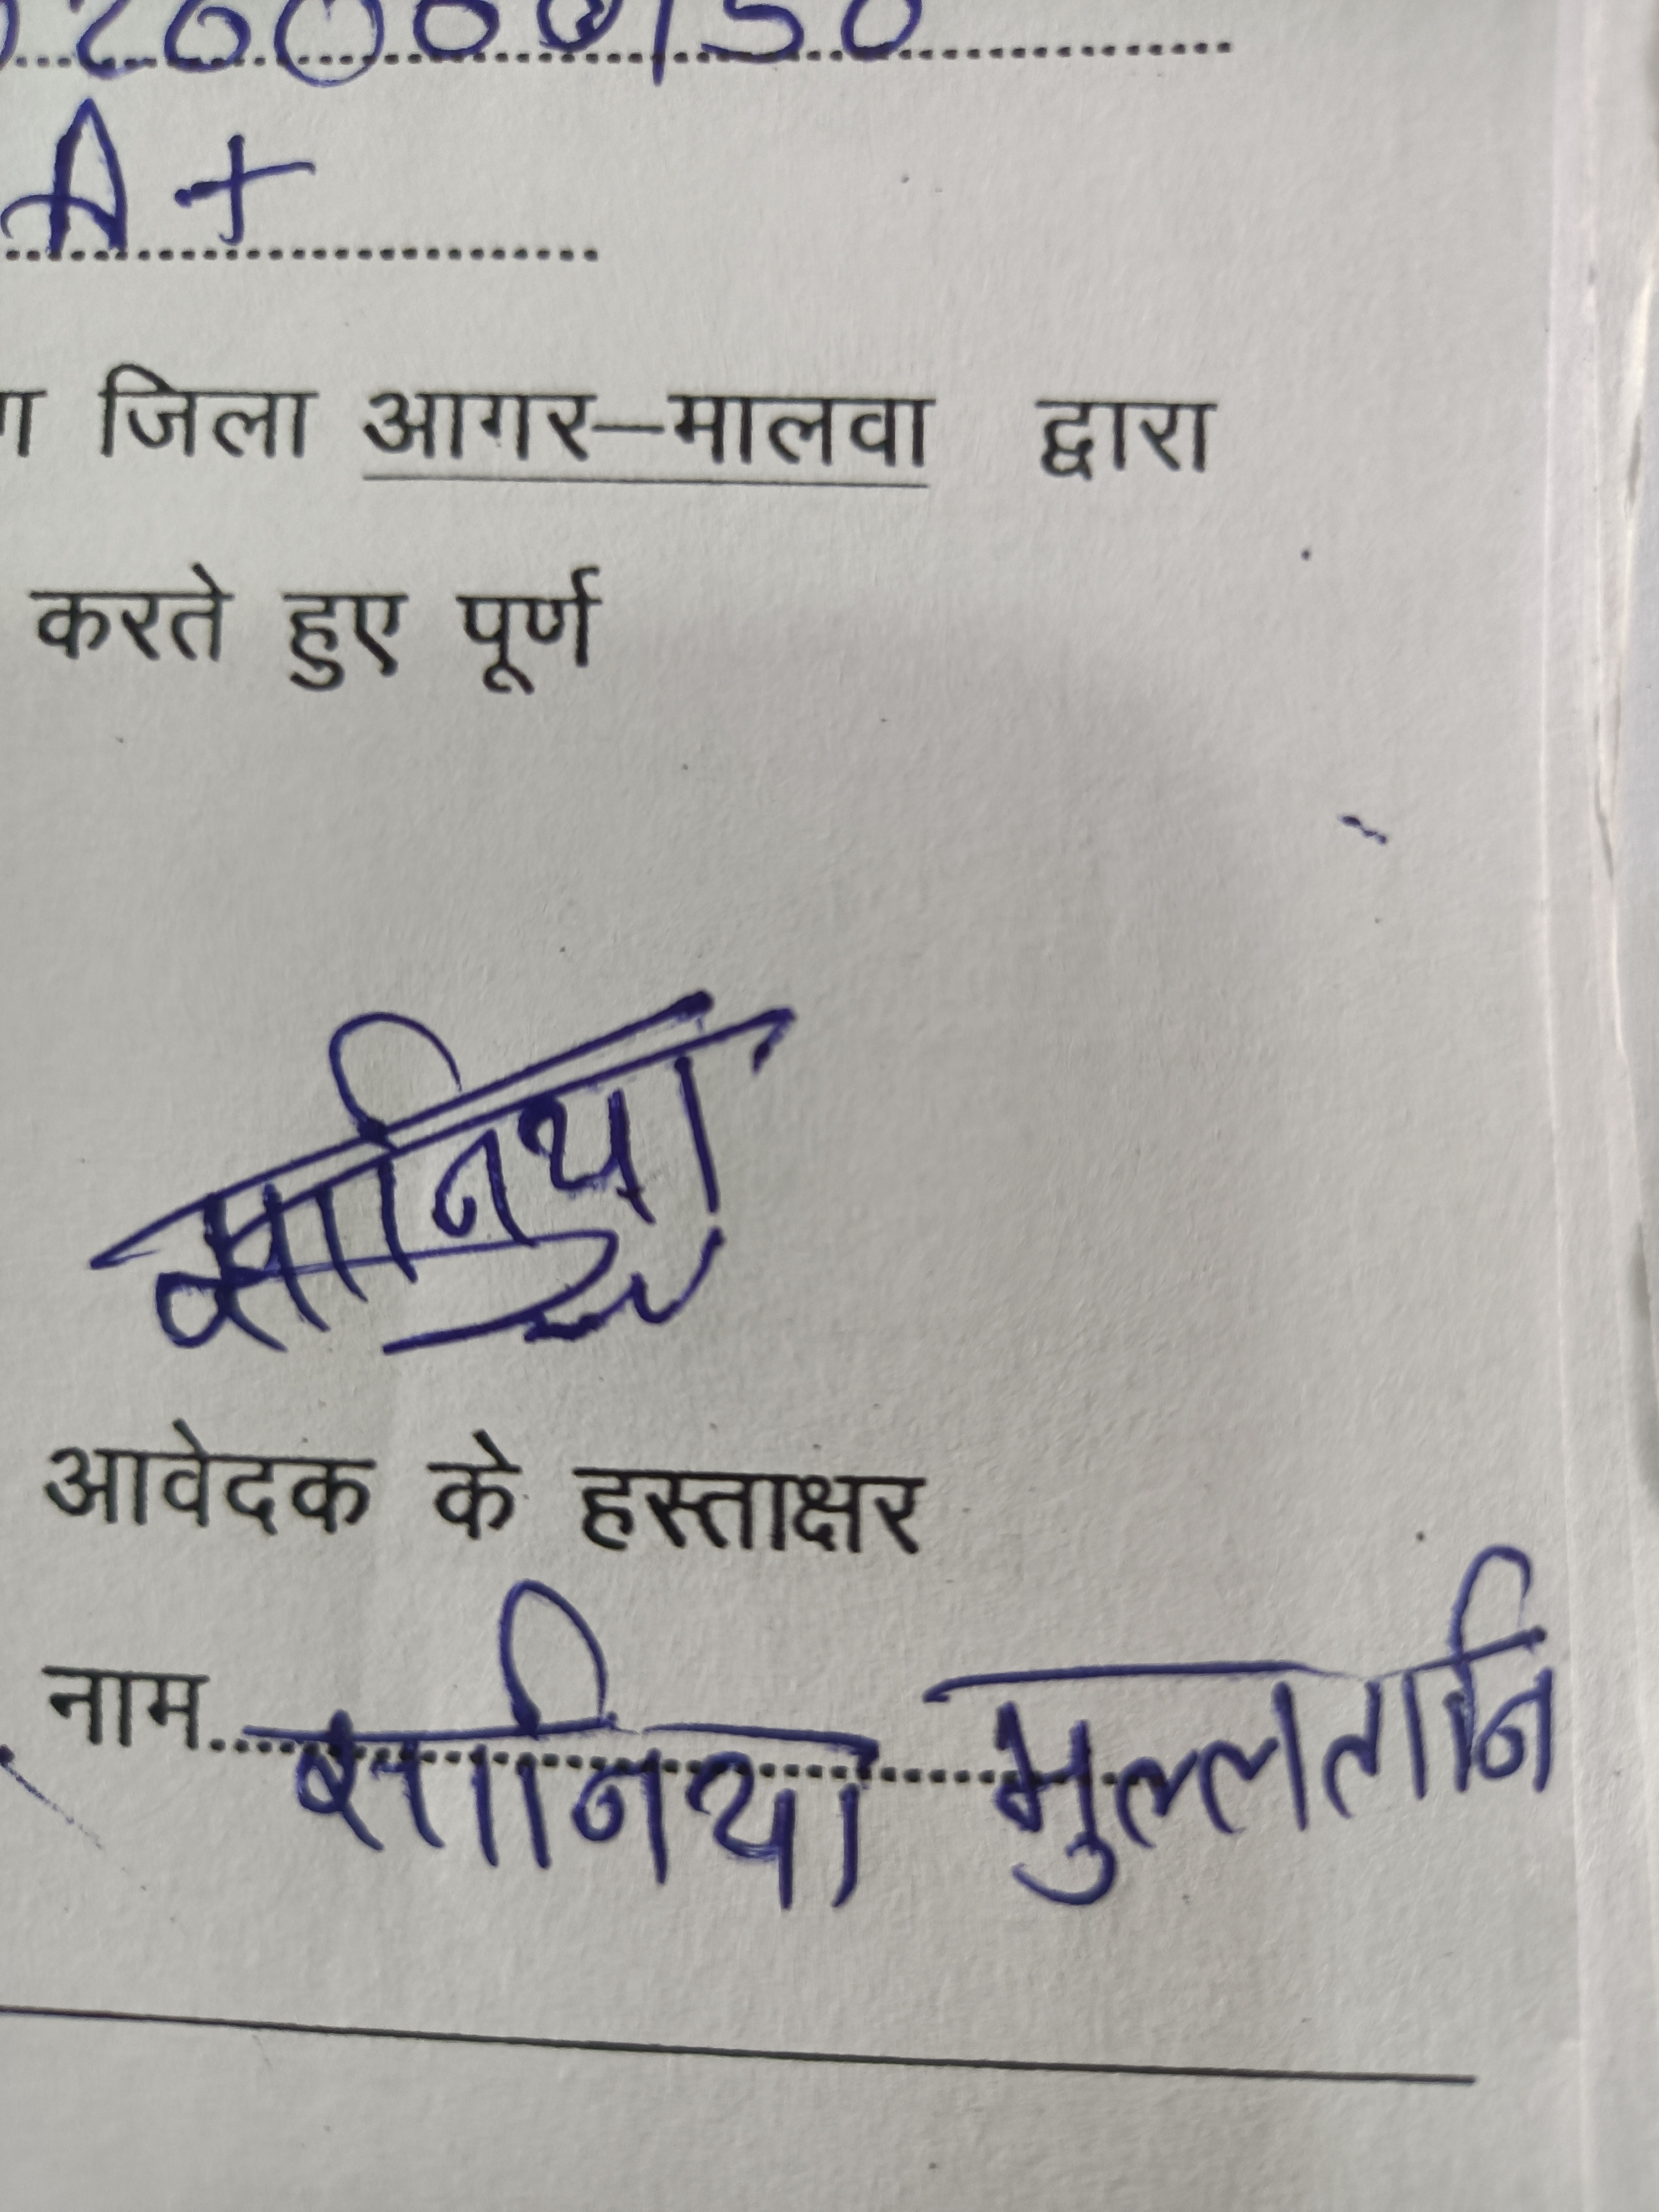 26000150
A+
जिला आगर–मालवा द्वारा
करते हुए पूर्ण
सानिया
आवेदक के हस्ताक्षर
नाम सानिया मुल्लतानि